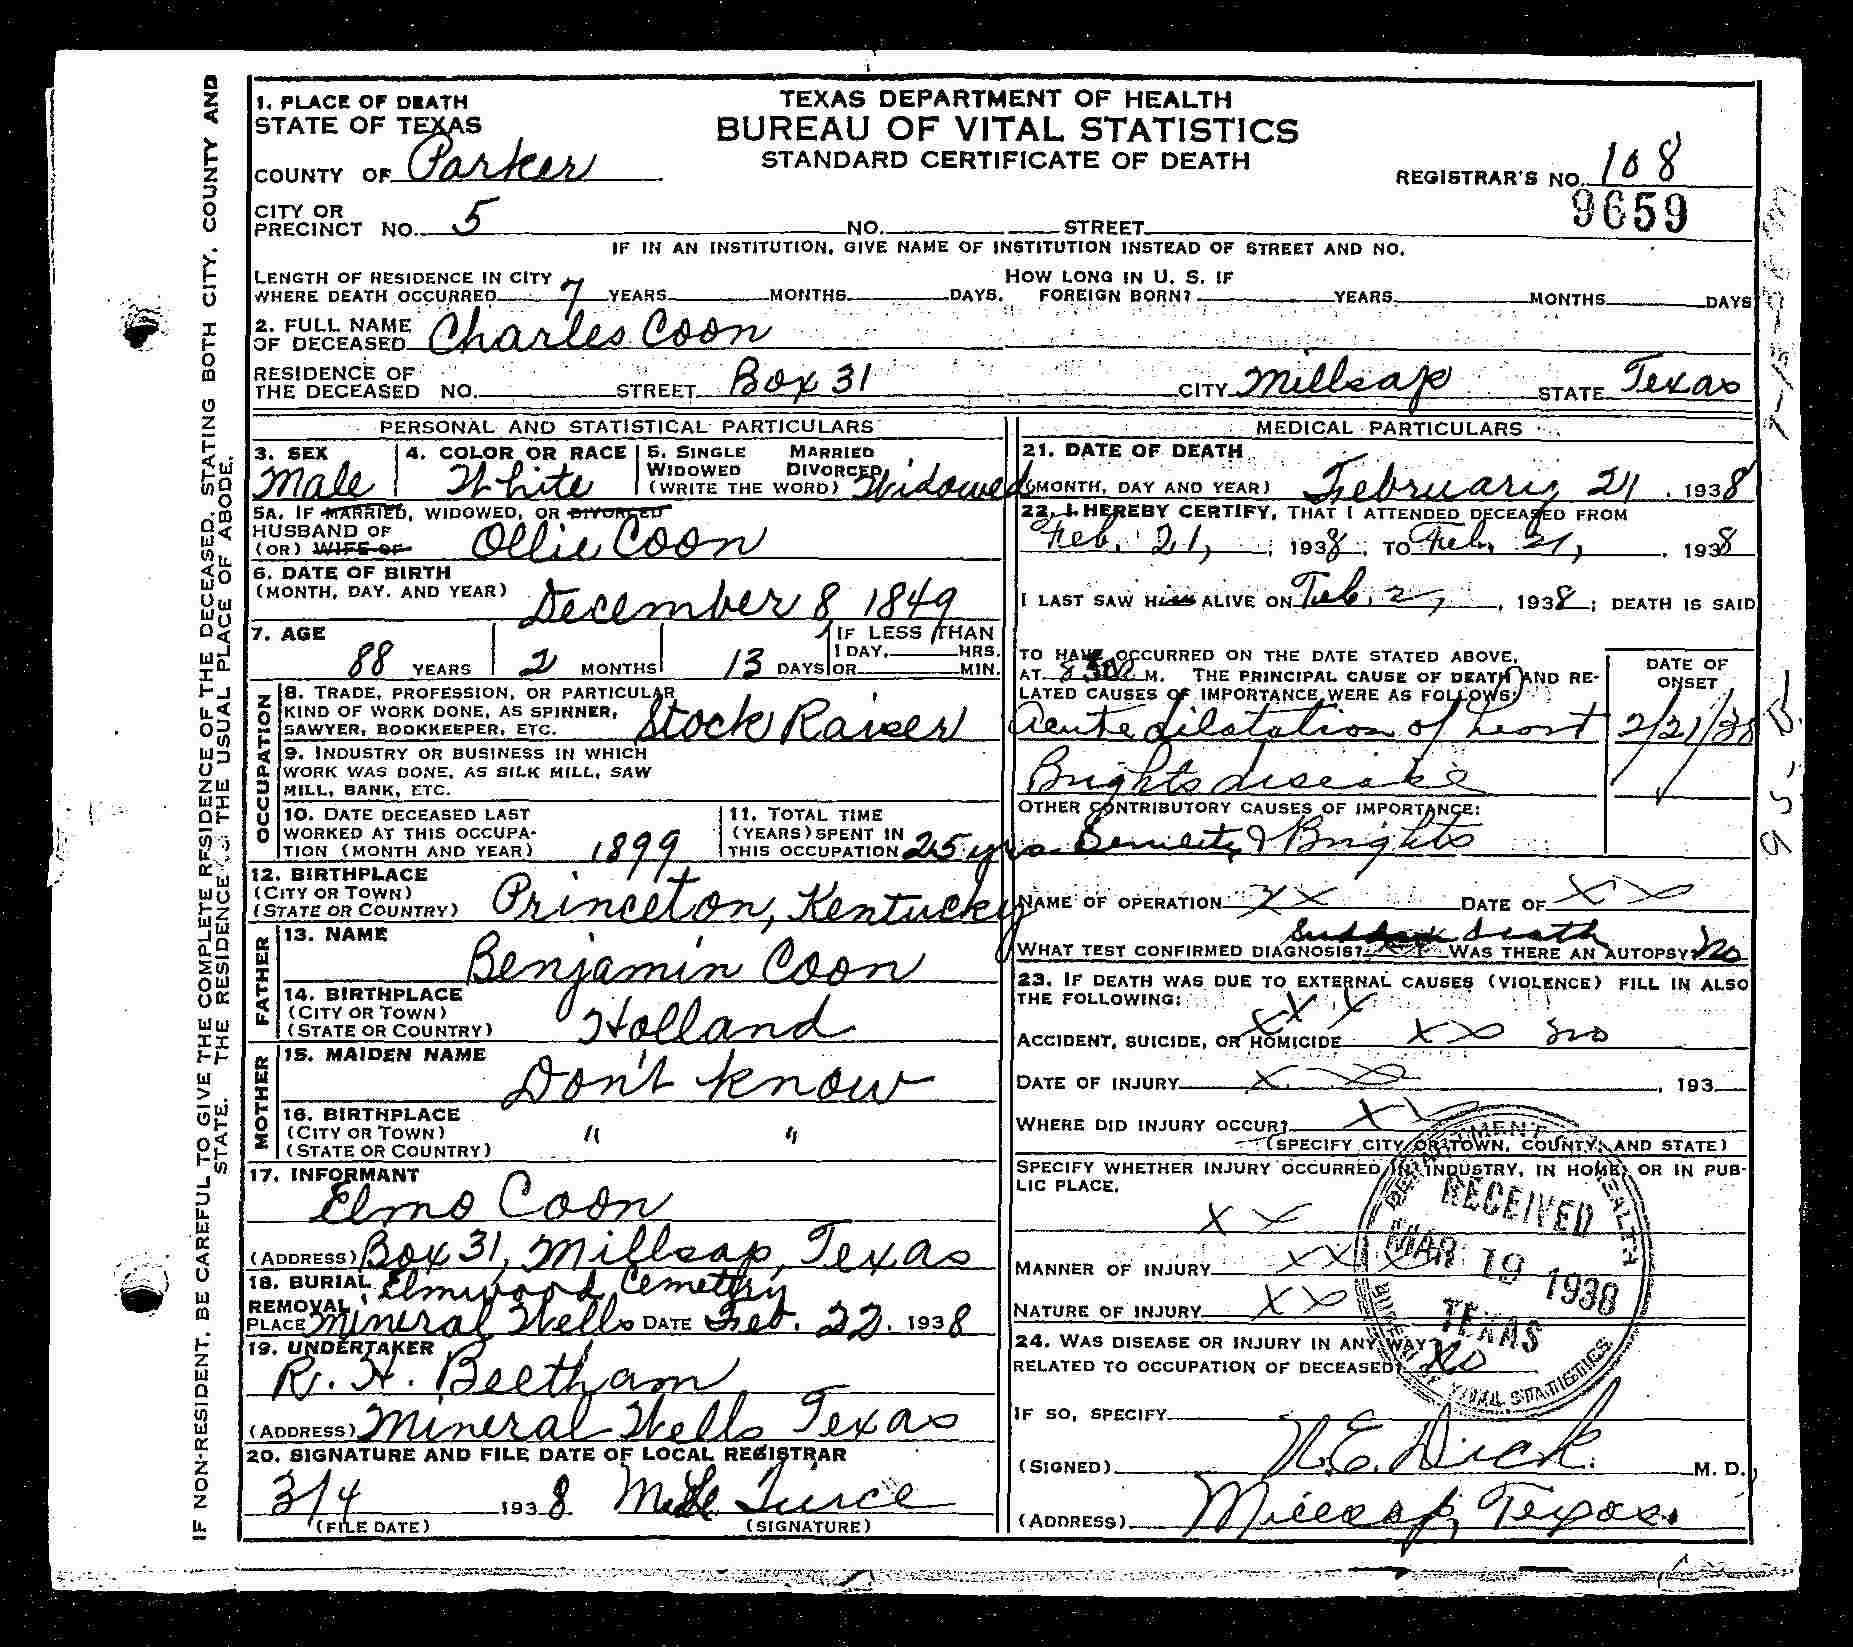 1. PLACE OF DEATH
STATE OF TEXAS
COUNTY OF Parker
TEXAS DEPARTMENT OF HEALTH
BUREAU OF VITAL STATISTICS
STANDARD CERTIFICATE OF DEATH
REGISTRAR'S NO. 108
9659
CITY OR
PRECINCT NO. 5 NO. STREET
IF IN AN INSTITUTION, GIVE NAME OF INSTITUTION INSTEAD OF STREET AND NO.
LENGTH OF RESIDENCE IN CITY
WHERE DEATH OCCURRED 7 YEARS MONTHS DAYS.
HOW LONG IN U. S. IF
FOREIGN BORN? YEARS MONTHS DAYS
2. FULL NAME
OF DECEASED Charles Coon
RESIDENCE OF
THE DECEASED NO. STREET Box 31 CITY Millsap STATE Texas
PERSONAL AND STATISTICAL PARTICULARS
3. SEX
Male
4. COLOR OR RACE
White
5. SINGLE MARRIED
WIDOWED DIVORCED
(WRITE THE WORD) Widowed
5A. IF MARRIED, WIDOWED, OR DIVORCED
HUSBAND OF
(OR) WIFE OF Ollie Coon
6. DATE OF BIRTH
(MONTH, DAY, AND YEAR) December 8 1849
7. AGE
88 YEARS 2 MONTHS 13 DAYS
IF LESS THAN
1 DAY, HRS.
OR MIN.
OCCUPATION
8. TRADE, PROFESSION, OR PARTICULAR
KIND OF WORK DONE, AS SPINNER,
SAWYER, BOOKKEEPER, ETC. Stock Raiser
9. INDUSTRY OR BUSINESS IN WHICH
WORK WAS DONE, AS SILK MILL, SAW
MILL, BANK, ETC.
10. DATE DECEASED LAST
WORKED AT THIS OCCUPA-
TION (MONTH AND YEAR) 1899
11. TOTAL TIME
(YEARS) SPENT IN
THIS OCCUPATION 25 yrs
12. BIRTHPLACE
(CITY OR TOWN)
(STATE OR COUNTRY) Princeton, Kentucky
FATHER
13. NAME
Benjamin Coon
14. BIRTHPLACE
(CITY OR TOWN)
(STATE OR COUNTRY) Holland
MOTHER
15. MAIDEN NAME
Don't know
16. BIRTHPLACE
(CITY OR TOWN) " "
(STATE OR COUNTRY)
17. INFORMANT
Elmo Coon
(ADDRESS) Box 31, Millsap, Texas
18. BURIAL Elmwood Cemetery
REMOVAL
PLACE Mineral Wells DATE Feb. 22, 1938
19. UNDERTAKER
R. H. Beetham
(ADDRESS) Mineral Wells Texas
20. SIGNATURE AND FILE DATE OF LOCAL REGISTRAR
3/4 1938
(FILE DATE) (SIGNATURE)
MEDICAL PARTICULARS
21. DATE OF DEATH
(MONTH, DAY AND YEAR) February 21, 1938
22. I HEREBY CERTIFY, THAT I ATTENDED DECEASED FROM
Feb. 21, 1938, TO Feb. 21, 1938
I LAST SAW Him ALIVE ON Feb. 1938; DEATH IS SAID
TO HAVE OCCURRED ON THE DATE STATED ABOVE,
AT M. THE PRINCIPAL CAUSE OF DEATH AND RE-
LATED CAUSES OF IMPORTANCE WERE AS FOLLOWS:
DATE OF
ONSET
Acute dilatation of heart 2/21/38
Brights disease
OTHER CONTRIBUTORY CAUSES OF IMPORTANCE:
Senility & Brights
NAME OF OPERATION XX DATE OF XX
WHAT TEST CONFIRMED DIAGNOSIS? Sudden death WAS THERE AN AUTOPSY? No
23. IF DEATH WAS DUE TO EXTERNAL CAUSES (VIOLENCE) FILL IN ALSO
THE FOLLOWING: XXX
ACCIDENT, SUICIDE, OR HOMICIDE XX no
DATE OF INJURY XX , 193
WHERE DID INJURY OCCUR? XX
(SPECIFY CITY OR TOWN, COUNTY, AND STATE)
SPECIFY WHETHER INJURY OCCURRED IN INDUSTRY, IN HOME, OR IN PUB-
LIC PLACE.
XX
MANNER OF INJURY XX
NATURE OF INJURY XX
24. WAS DISEASE OR INJURY IN ANY WAY
RELATED TO OCCUPATION OF DECEASED? No
IF SO, SPECIFY
(SIGNED) N.E. Dick M. D.
(ADDRESS) Millsap, Texas.
DEPARTMENT OF HEALTH
RECEIVED
MAR 19 1938
TEXAS
BUREAU OF VITAL STATISTICS
IF NON-RESIDENT, BE CAREFUL TO GIVE THE COMPLETE RESIDENCE OF THE DECEASED, STATING BOTH CITY, COUNTY AND
STATE. THE RESIDENCE IS THE USUAL PLACE OF ABODE.